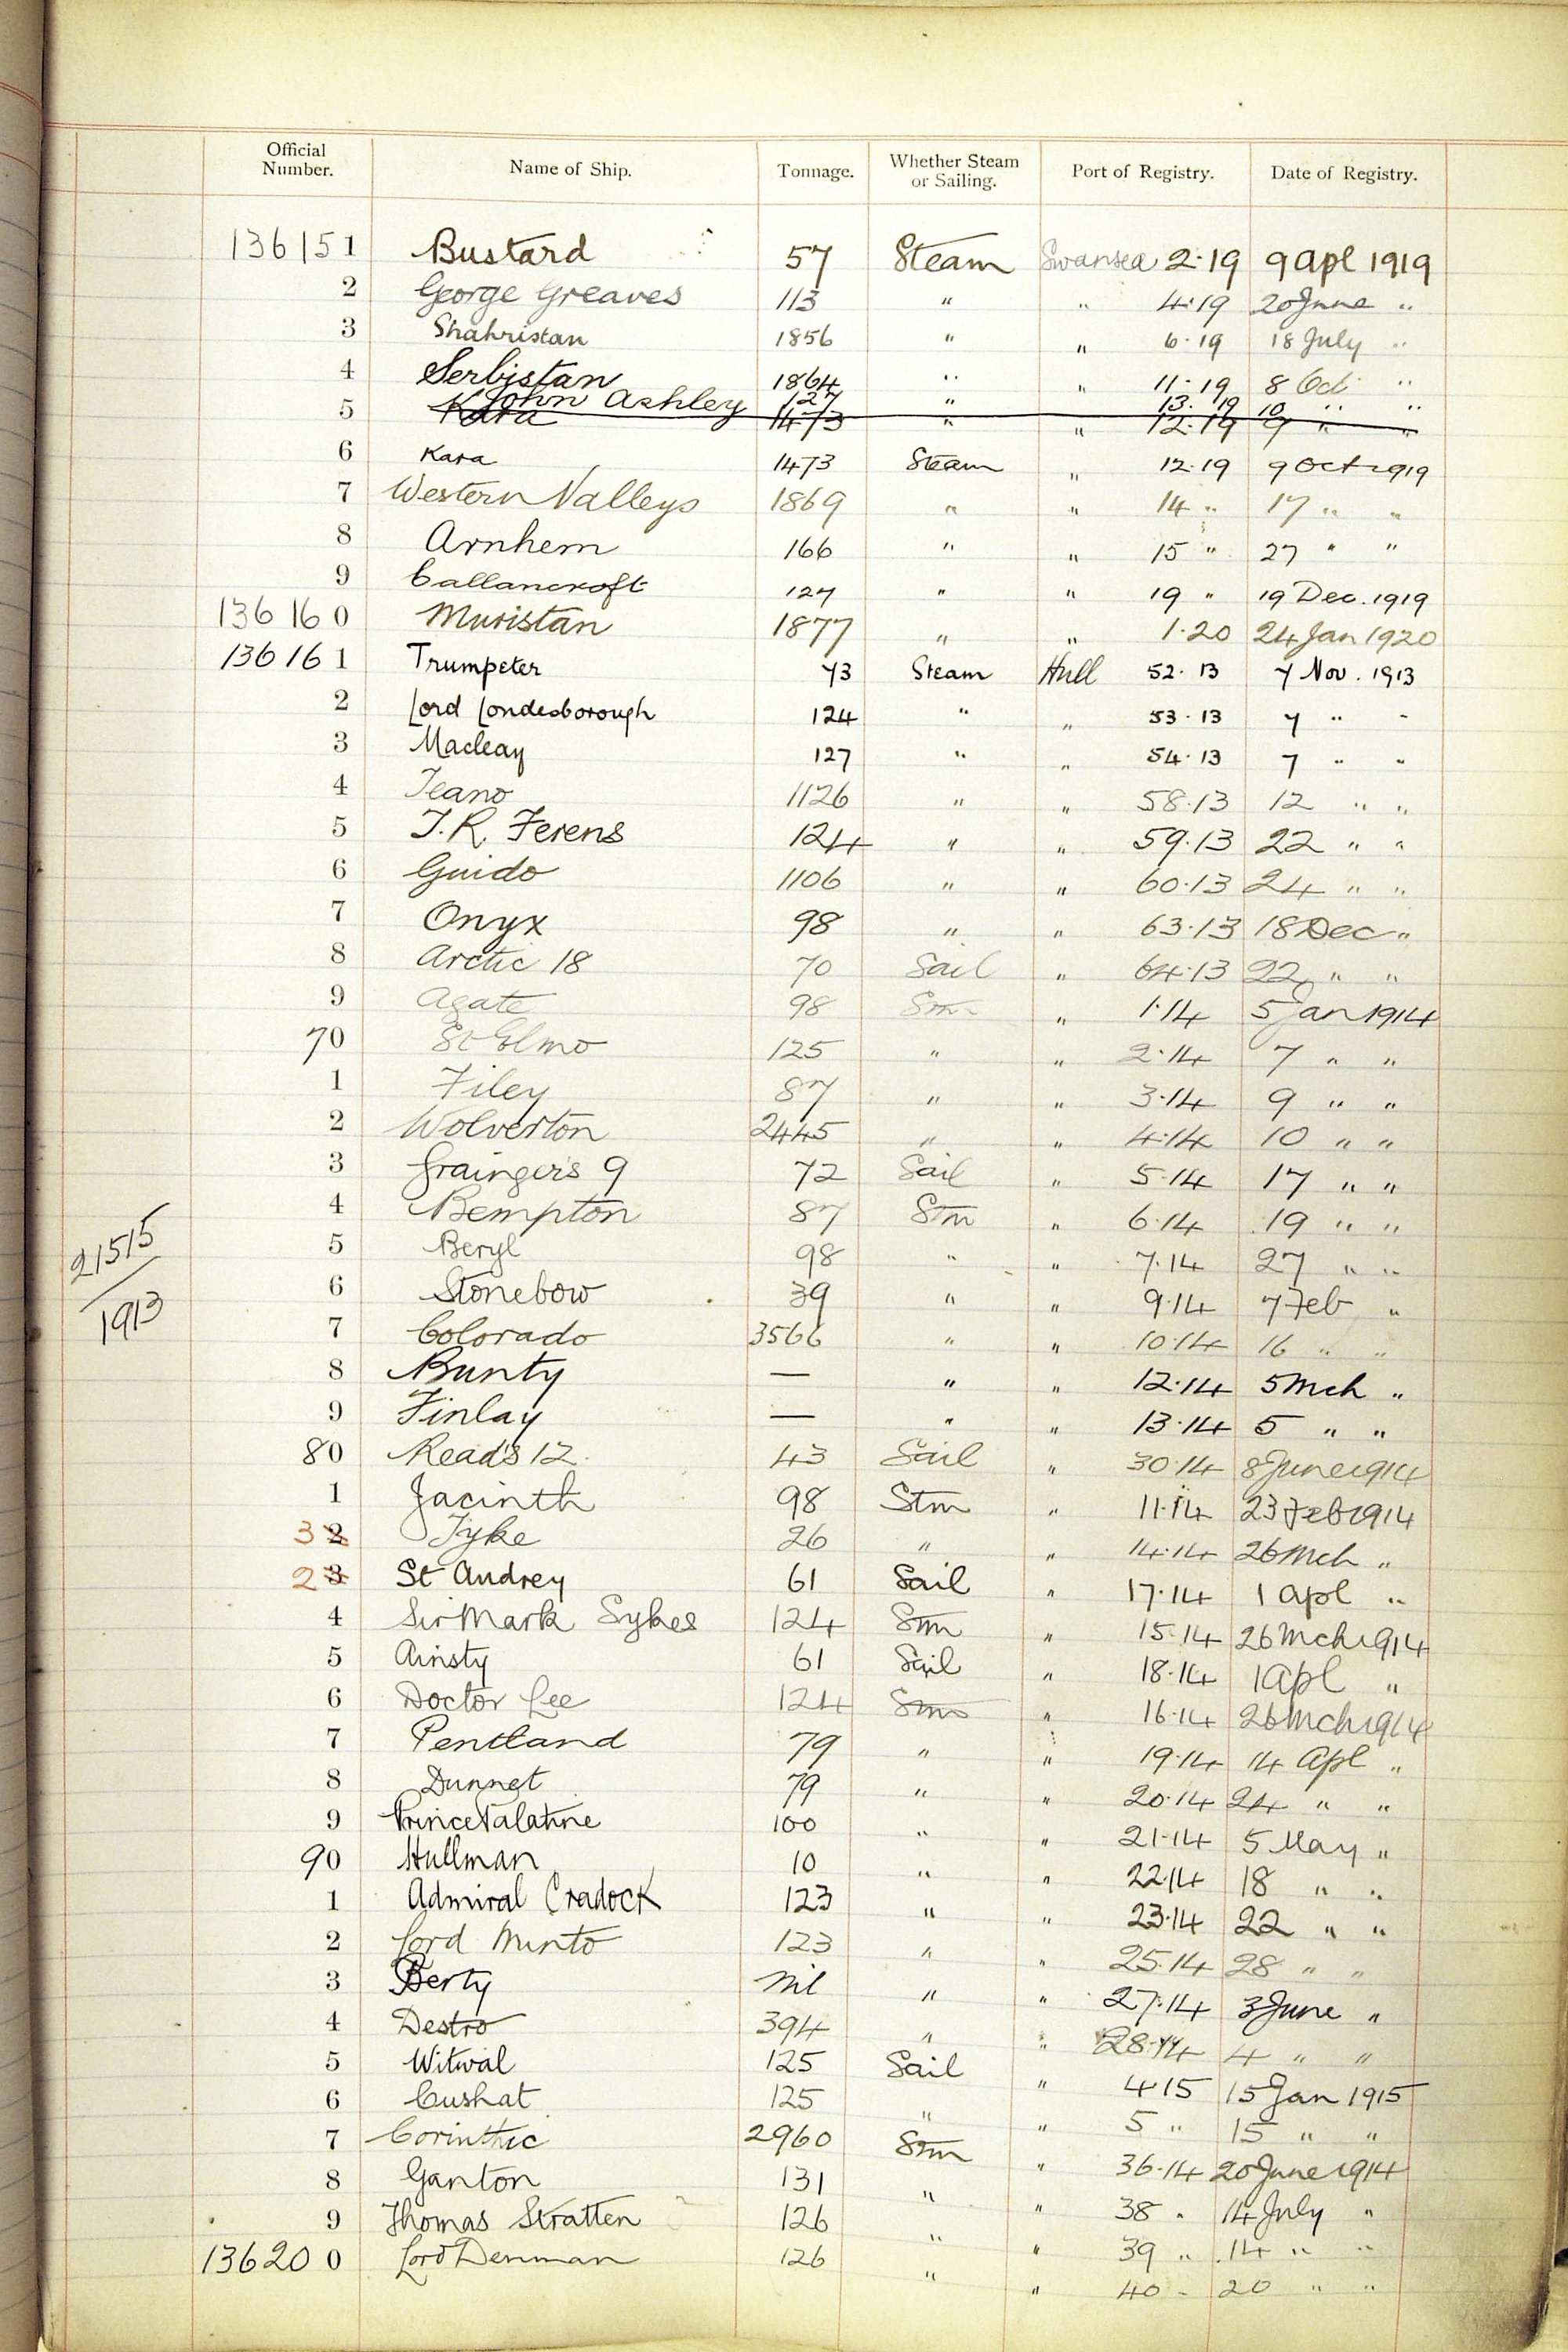 Official Number. Name of Ship. Tonnage. Whether Steam or Sailing. Port of Registry. Date of Registry.
136151 Bustard 57 Steam Swansea 2·19 9 Apl 1919
2 George Greaves 113 " " 4·19 20 June "
3 Shahristan 1856 " " 6·19 18 July "
4 Serbistan 1864 " " 11·19 8 Oct "
John Ashley 127 " 13·19 10 " "
5 Kara 1473 " " 12·19 9 " "
6 Kara 1473 Steam " 12·19 9 Oct 1919
7 Western Valleys 1869 " " 14 " 17 " "
8 Arnhem 166 " " 15 " 27 " "
9 Callancroft 127 " " 19 " 19 Dec. 1919
136160 Muristan 1877 " " 1·20 24 Jan 1920
136161 Trumpeter 73 Steam Hull 52·13 7 Nov. 1913
2 Lord Londesborough 124 " " 53·13 7 " "
3 Macleay 127 " " 54·13 7 " "
4 Teano 1126 " " 58·13 12 " "
5 T.R. Ferens 124 " " 59·13 22 " "
6 Guido 1106 " " 60·13 24 " "
7 Onyx 98 " " 63·13 18 Dec "
8 Arctic 18 70 Sail " 64·13 22 " "
9 Agate 98 Stm " 1·14 5 Jan 1914
70 St Elmo 125 " " 2·14 7 " "
1 Filey 87 " " 3·14 9 " "
2 Wolverton 2445 " " 4·14 10 " "
3 Grainger's 9 72 Sail " 5·14 17 " "
4 Bempton 87 Stm " 6·14 19 " "
21515
5 Beryl 98 " " 7·14 27 " "
6 Stonebow 39 " " 9·14 7 Feb "
1913
7 Colorado 3566 " " 10·14 16 " "
8 Bunty — " " 12·14 5 Mch "
9 Finlay — " " 13·14 5 " "
80 Read's 12. 43 Sail " 30·14 8 June 1914
1 Jacinth 98 Stm " 11·14 23 Feb 1914
3 2 Tyke 26 " " 14·14 26 Mch "
2 3 St Audrey 61 Sail " 17·14 1 Apl "
4 Sir Mark Sykes 124 Stm " 15·14 26 Mch 1914
5 Ainsty 61 Sail " 18·14 1 Apl "
6 Doctor Lee 124 Stm " 16·14 26 Mch 1914
7 Pentland 79 " " 19·14 14 Apl "
8 Dunnet 79 " " 20·14 24 " "
9 Prince Palatine 100 " " 21·14 5 May "
90 Hullman 10 " " 22·14 18 " "
1 Admiral Cradock 123 " " 23·14 22 " "
2 Lord Minto 123 " " 25·14 28 " "
3 Berty Nil " " 27·14 3 June "
4 Destro 394 " " 28·14 4 " "
5 Witwal 125 Sail " 4·15 15 Jan 1915
6 Cushat 125 " " 5 " 15 " "
7 Corinthic 2960 Stm " 36·14 20 June 1914
8 Ganton 131 " " 38 " 14 July "
9 Thomas Stratten 126 " " 39 " 14 " "
136200 Lord Denman 126 " " 40 " 20 " "